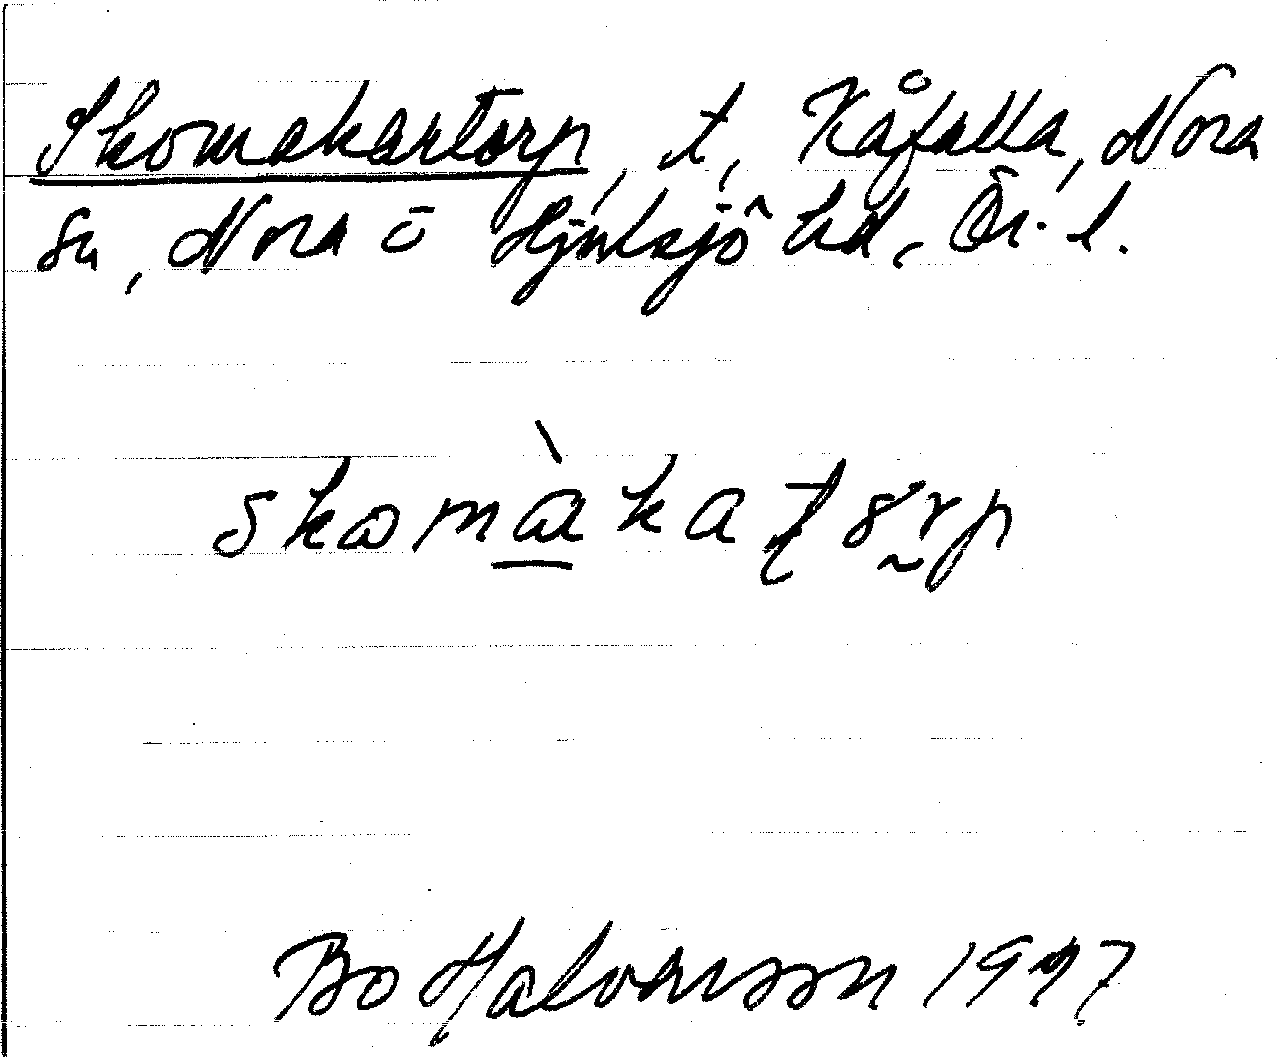 Skomakartorp, t, Kåfalla, Nora
sn, Nora o Hjulsjö hd, Ör. l.
skomàkaʈ8rp
Bo Halvarsson 1997